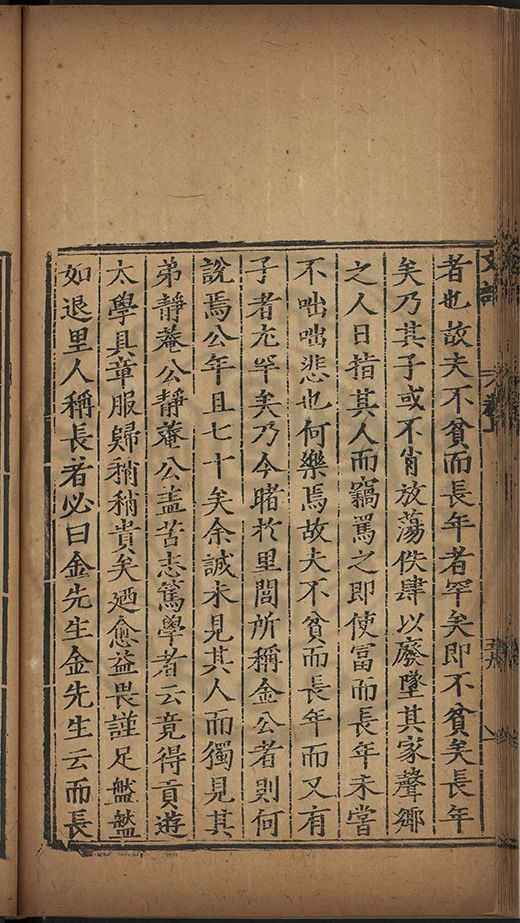 者也故夫不貧而長年者罕矣即不貧矣長年
矣乃其子或不肖放蕩佚肆以廢墜其家聲鄉
之人日指其人而竊罵之即使富而長年未嘗
不咄咄悲也何樂焉故夫不貧而長年而又有
子者尤罕矣乃今睹於里閭所稱金公者則何
說焉公年且七十矣余誠未見其人而獨見其
弟靜菴公靜菴公盖苦志篤學者云竟得貢遊
太學具章服歸稍稍貴矣廼愈益畏謹足盤盤
如退里人稱長者必曰金先生金先生云而長